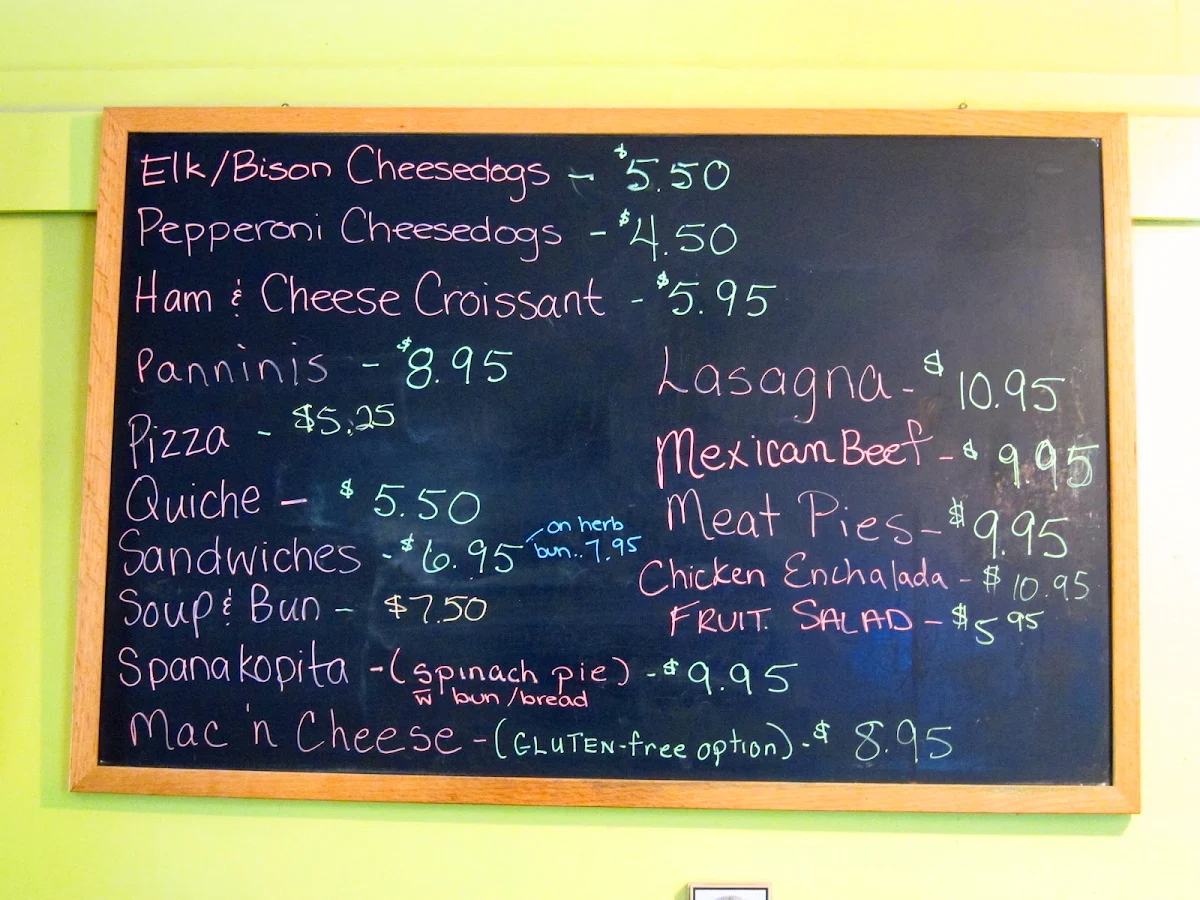 Elk/Bison Cheesedogs - $5.50
Pepperoni Cheesedogs - $4.50
Ham & Cheese Croissant - $5.95
Panninis - $8.95
Pizza - $5.25
Quiche - $5.50
Sandwiches - $6.95 on herb
bun.. 7.95
Soup & Bun - $7.50
Spanakopita - (spinach pie) - $9.95
w bun/bread
Mac 'n Cheese - (GLUTEN-free option) - $8.95
Lasagna - $10.95
Mexican Beef - $9.95
Meat Pies - $9.95
Chicken Enchalada - $10.95
FRUIT SALAD - $5.95